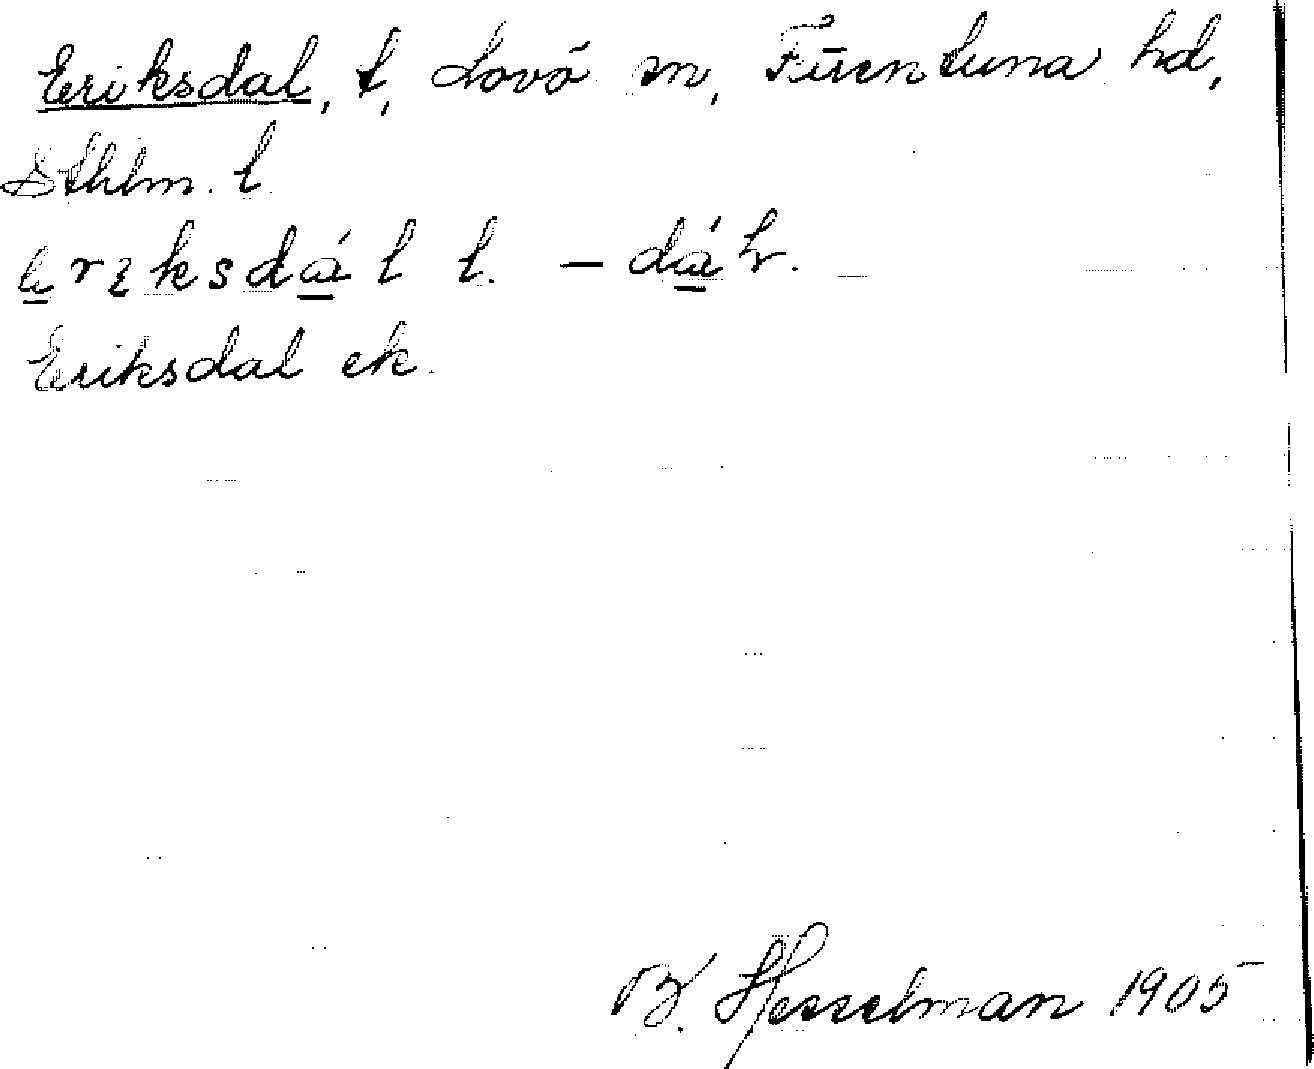 Eriksdal, t, Lovö sn, Färentuna hd,
Sthlm. l.
erıksdál l. – dáh.
Eriksdal ek.
B. Hesselman 1905